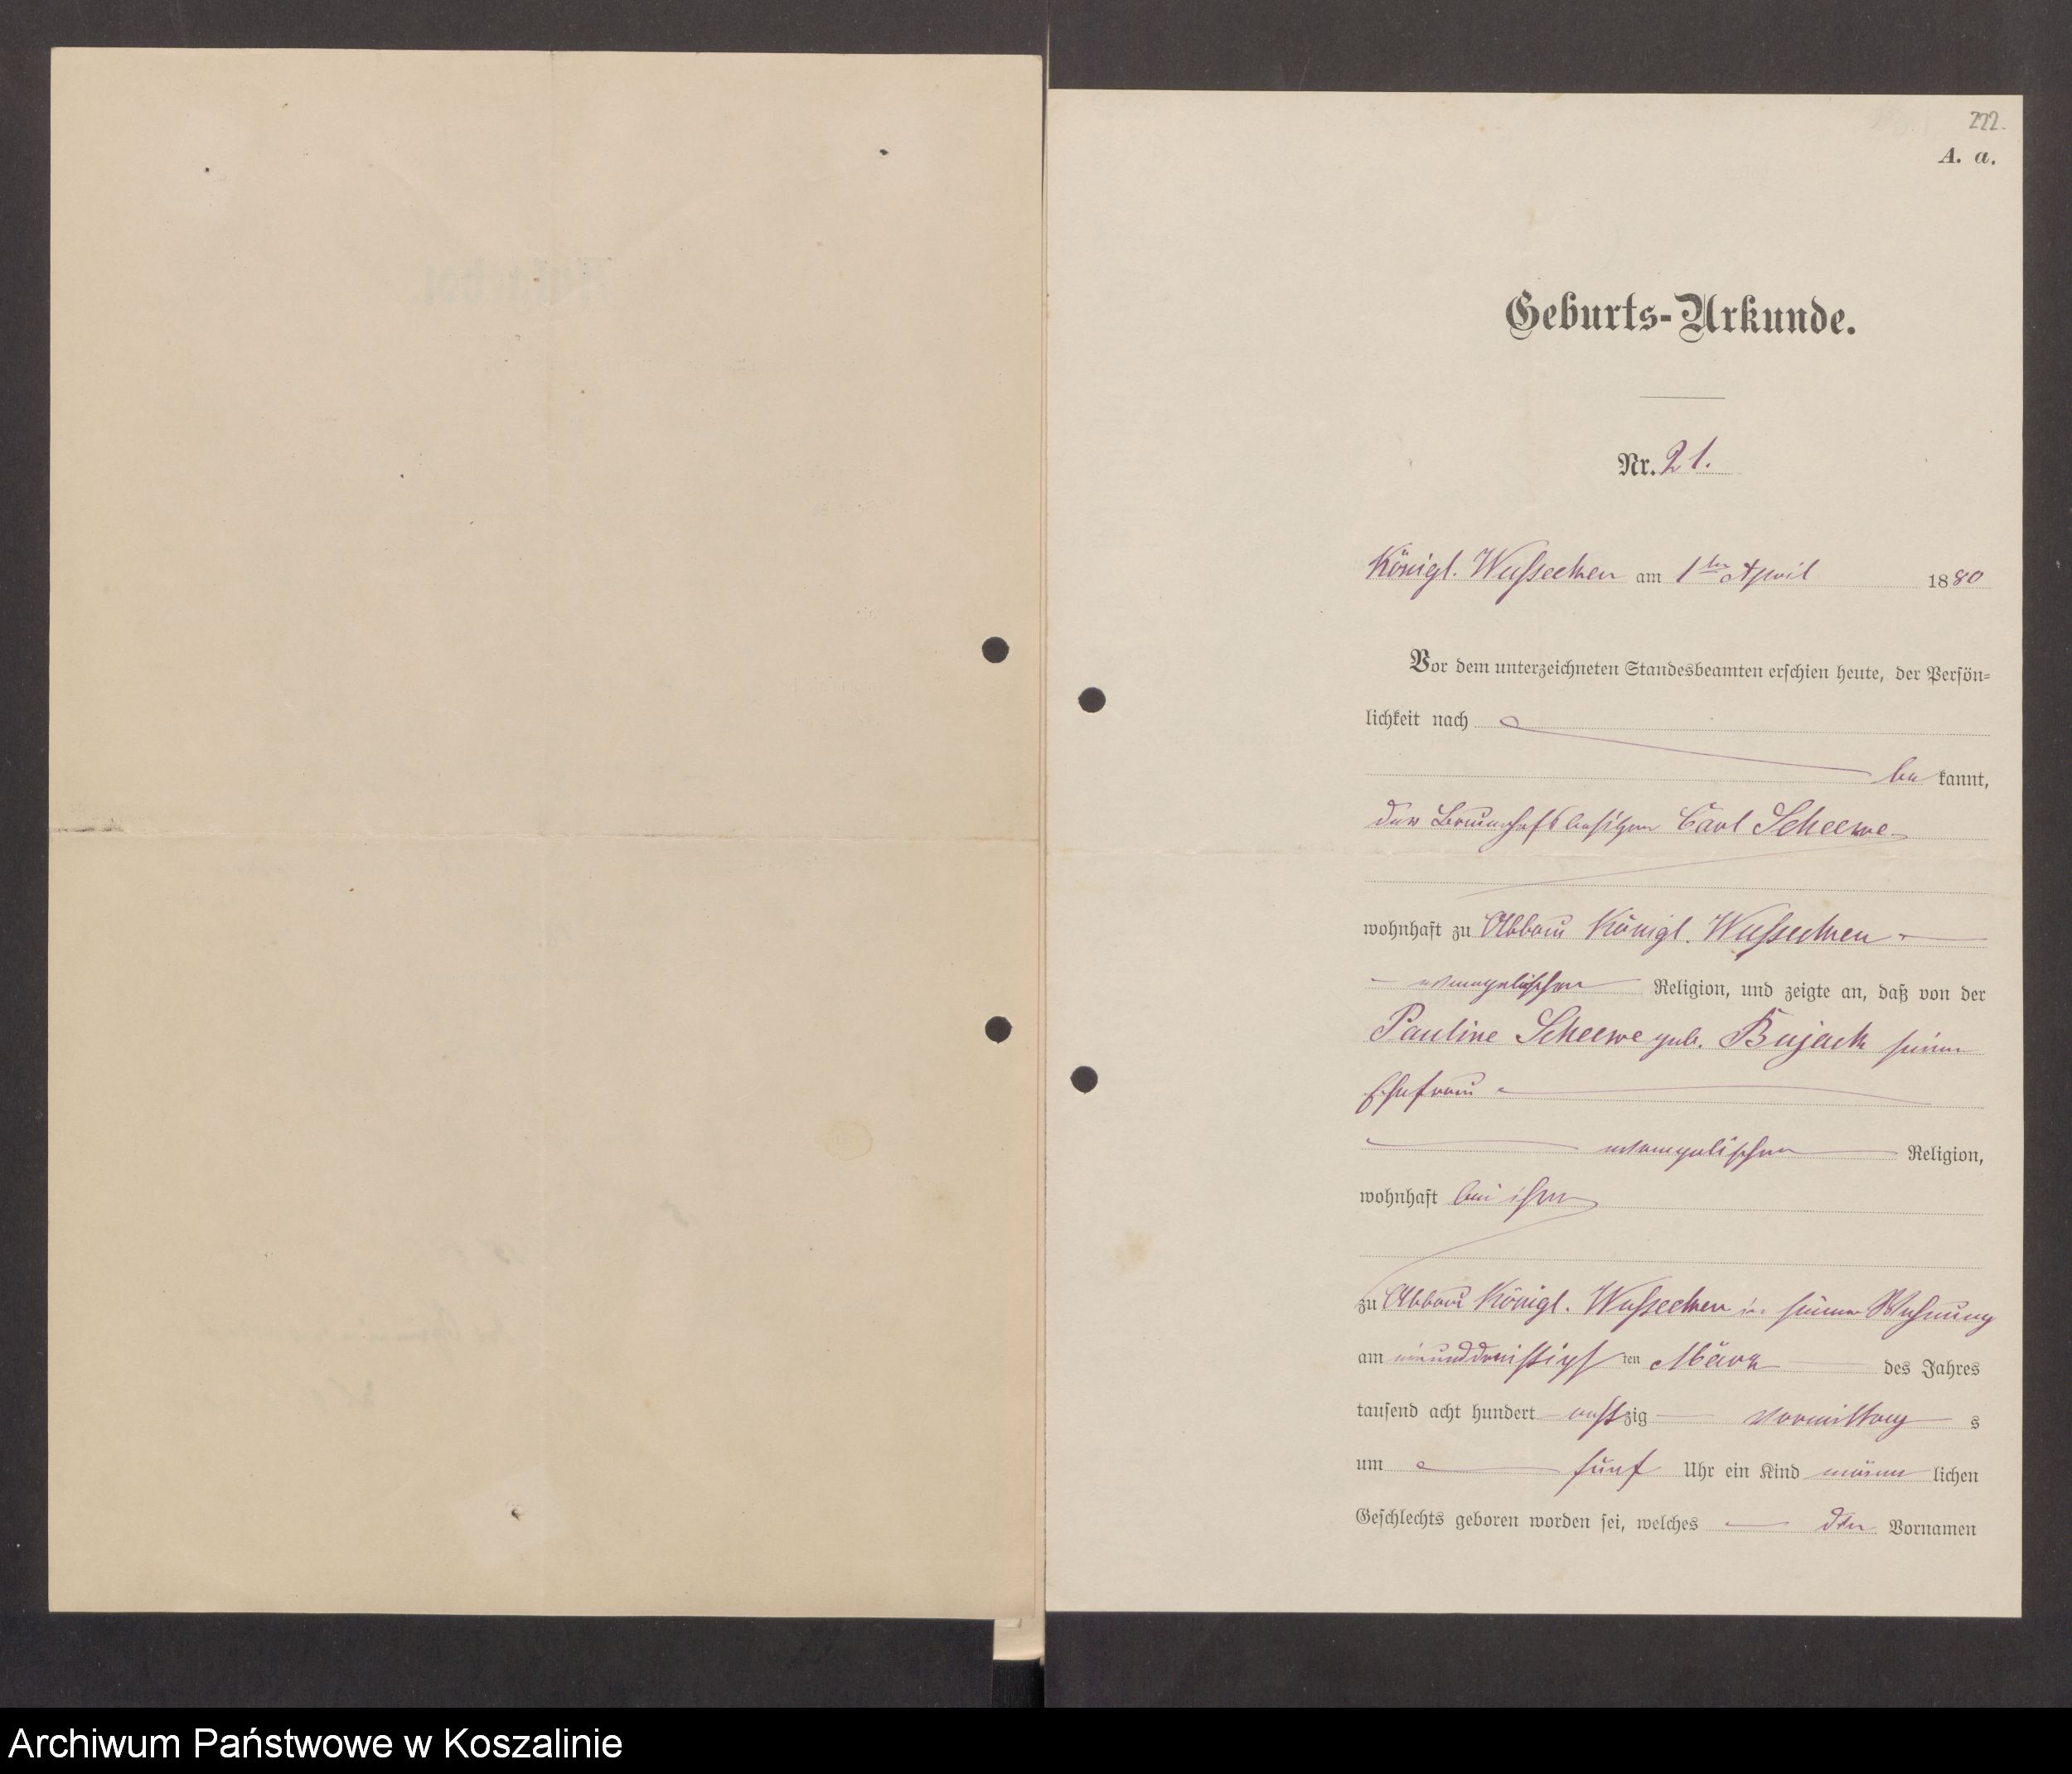 222.
A. a.
Geburts-Urkunde.
Nr. 21.
Königl. Wussecken am 1ten April 1880
Vor dem unterzeichneten Standesbeamten erschien heute, der Persön-
lichkeit nach
bekannt,
der Bauerhofsbesitzer Carl Scheewe
wohnhaft zu Abbau Königl. Wussecken
evangelischer Religion, und zeigte an, daß von der
Pauline Scheewe geb. Bujack seiner
Ehefrau
evangelischer Religion,
wohnhaft bei ihm
zu Abbau Königl. Wussecken in seiner Wohnung
am einunddreißigsten März des Jahres
tausend acht hundert achtzig Vormittags
um fünf Uhr ein Kind männlichen
Geschlechts geboren worden sei, welches den Vornamen
Archiwum Państwowe w Koszalinie